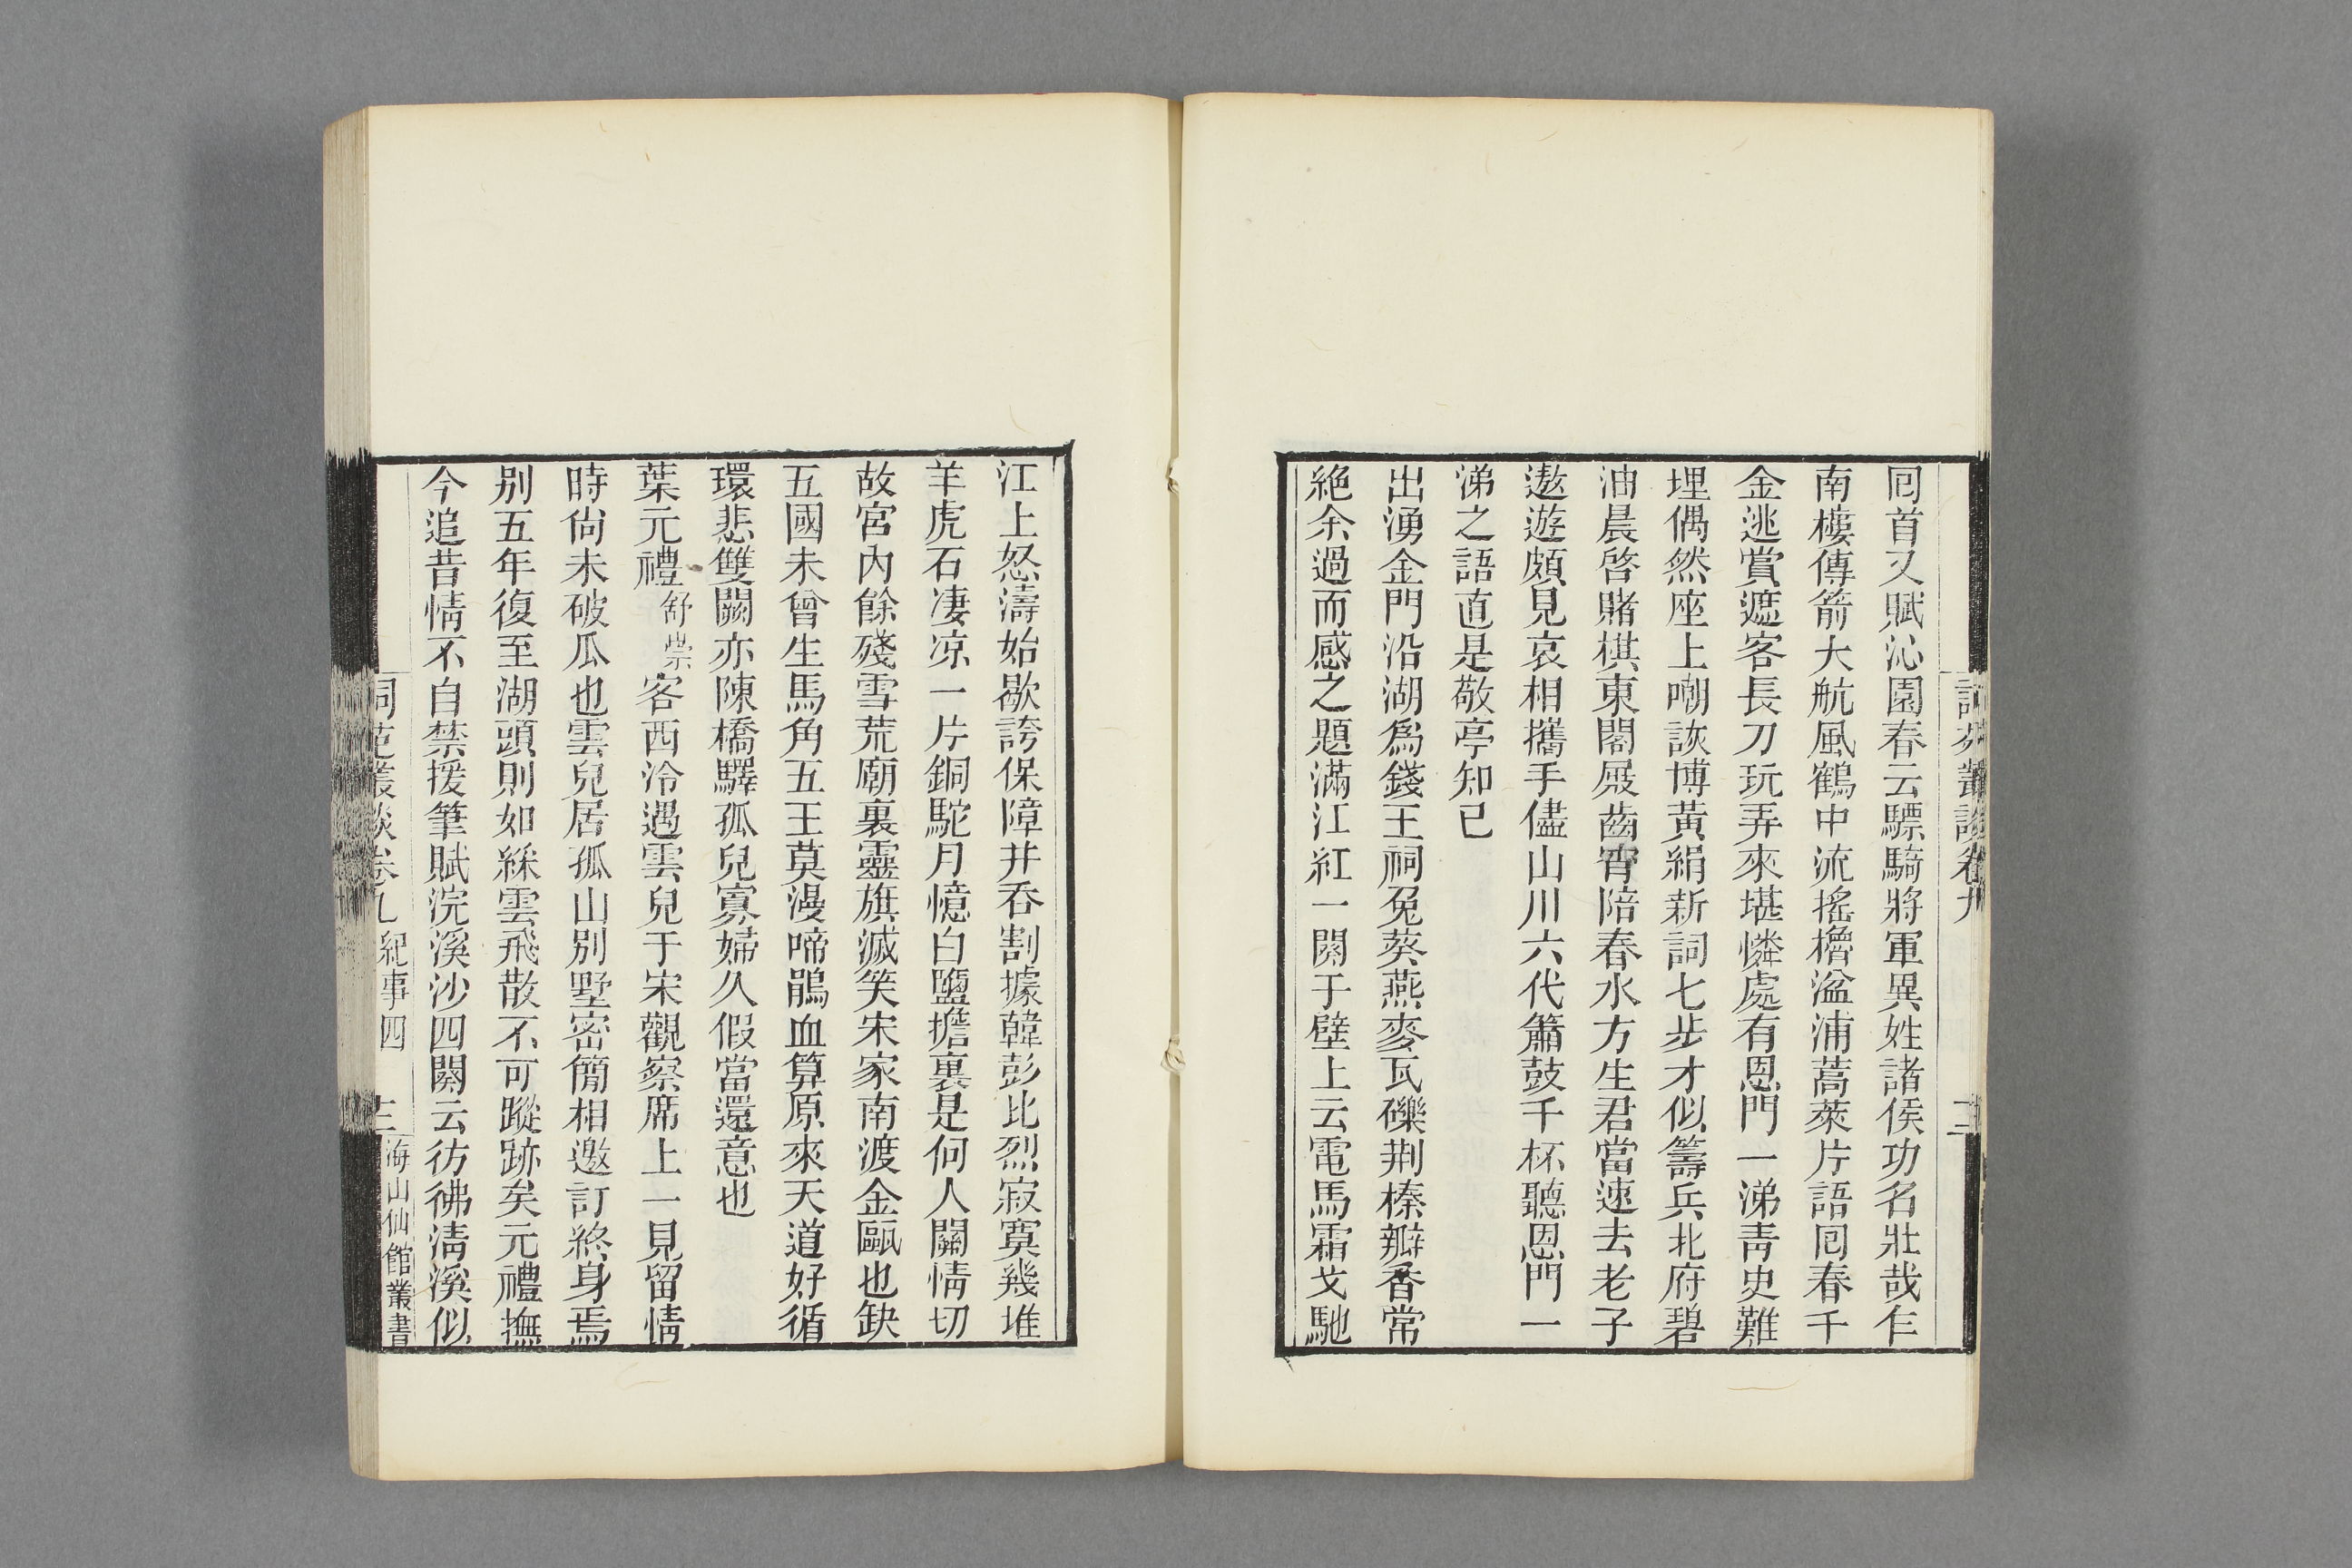 囘首又賦沁園春云驃騎將軍異姓諸侯功名壯哉乍
南樓傳箭大航風鶴中流搖櫓湓浦蒿萊片語囘春千
金逃賞遮客長刀玩弄來堪憐處有恩門一涕靑史難
埋偶然座上嘲詼博黃絹新詞七步才似籌兵北府碧
油晨啓賭棋東閣屐齒宵陪春水方生君當速去老子
遨遊頗見哀相攜手儘山川六代簫鼓千杯聽恩門一
涕之語直是敬亭知已
出湧金門沿湖爲錢王祠兔葵燕麥瓦礫荆榛瓣香常
絶余過而感之題滿江紅一闋于壁上云電馬霜戈馳
江上怒濤始歇誇保障幷吞割據韓彭比烈寂寞幾堆
羊虎石凄凉一片銅駝月憶白鹽擔裏是何人關情切
故宮內餘殘雪荒廟裏靈旗滅笑宋家南渡金甌也缺
五國未曾生馬角五王莫漫啼鵑血算原來天道好循
環悲雙闕亦陳橋驛孤兒寡婦久假當還意也
葉元禮舒崇客西泠遇雲兒于宋觀察席上一見留情
時尙未破瓜也雲兒居孤山別墅密簡相邀訂終身焉
別五年復至湖頭則如綵雲飛散不可蹤跡矣元禮撫
今追昔情不自禁援筆賦浣溪沙四闋云彷彿淸溪似
詞苑叢談卷九 紀事四 十三 海山仙館叢書